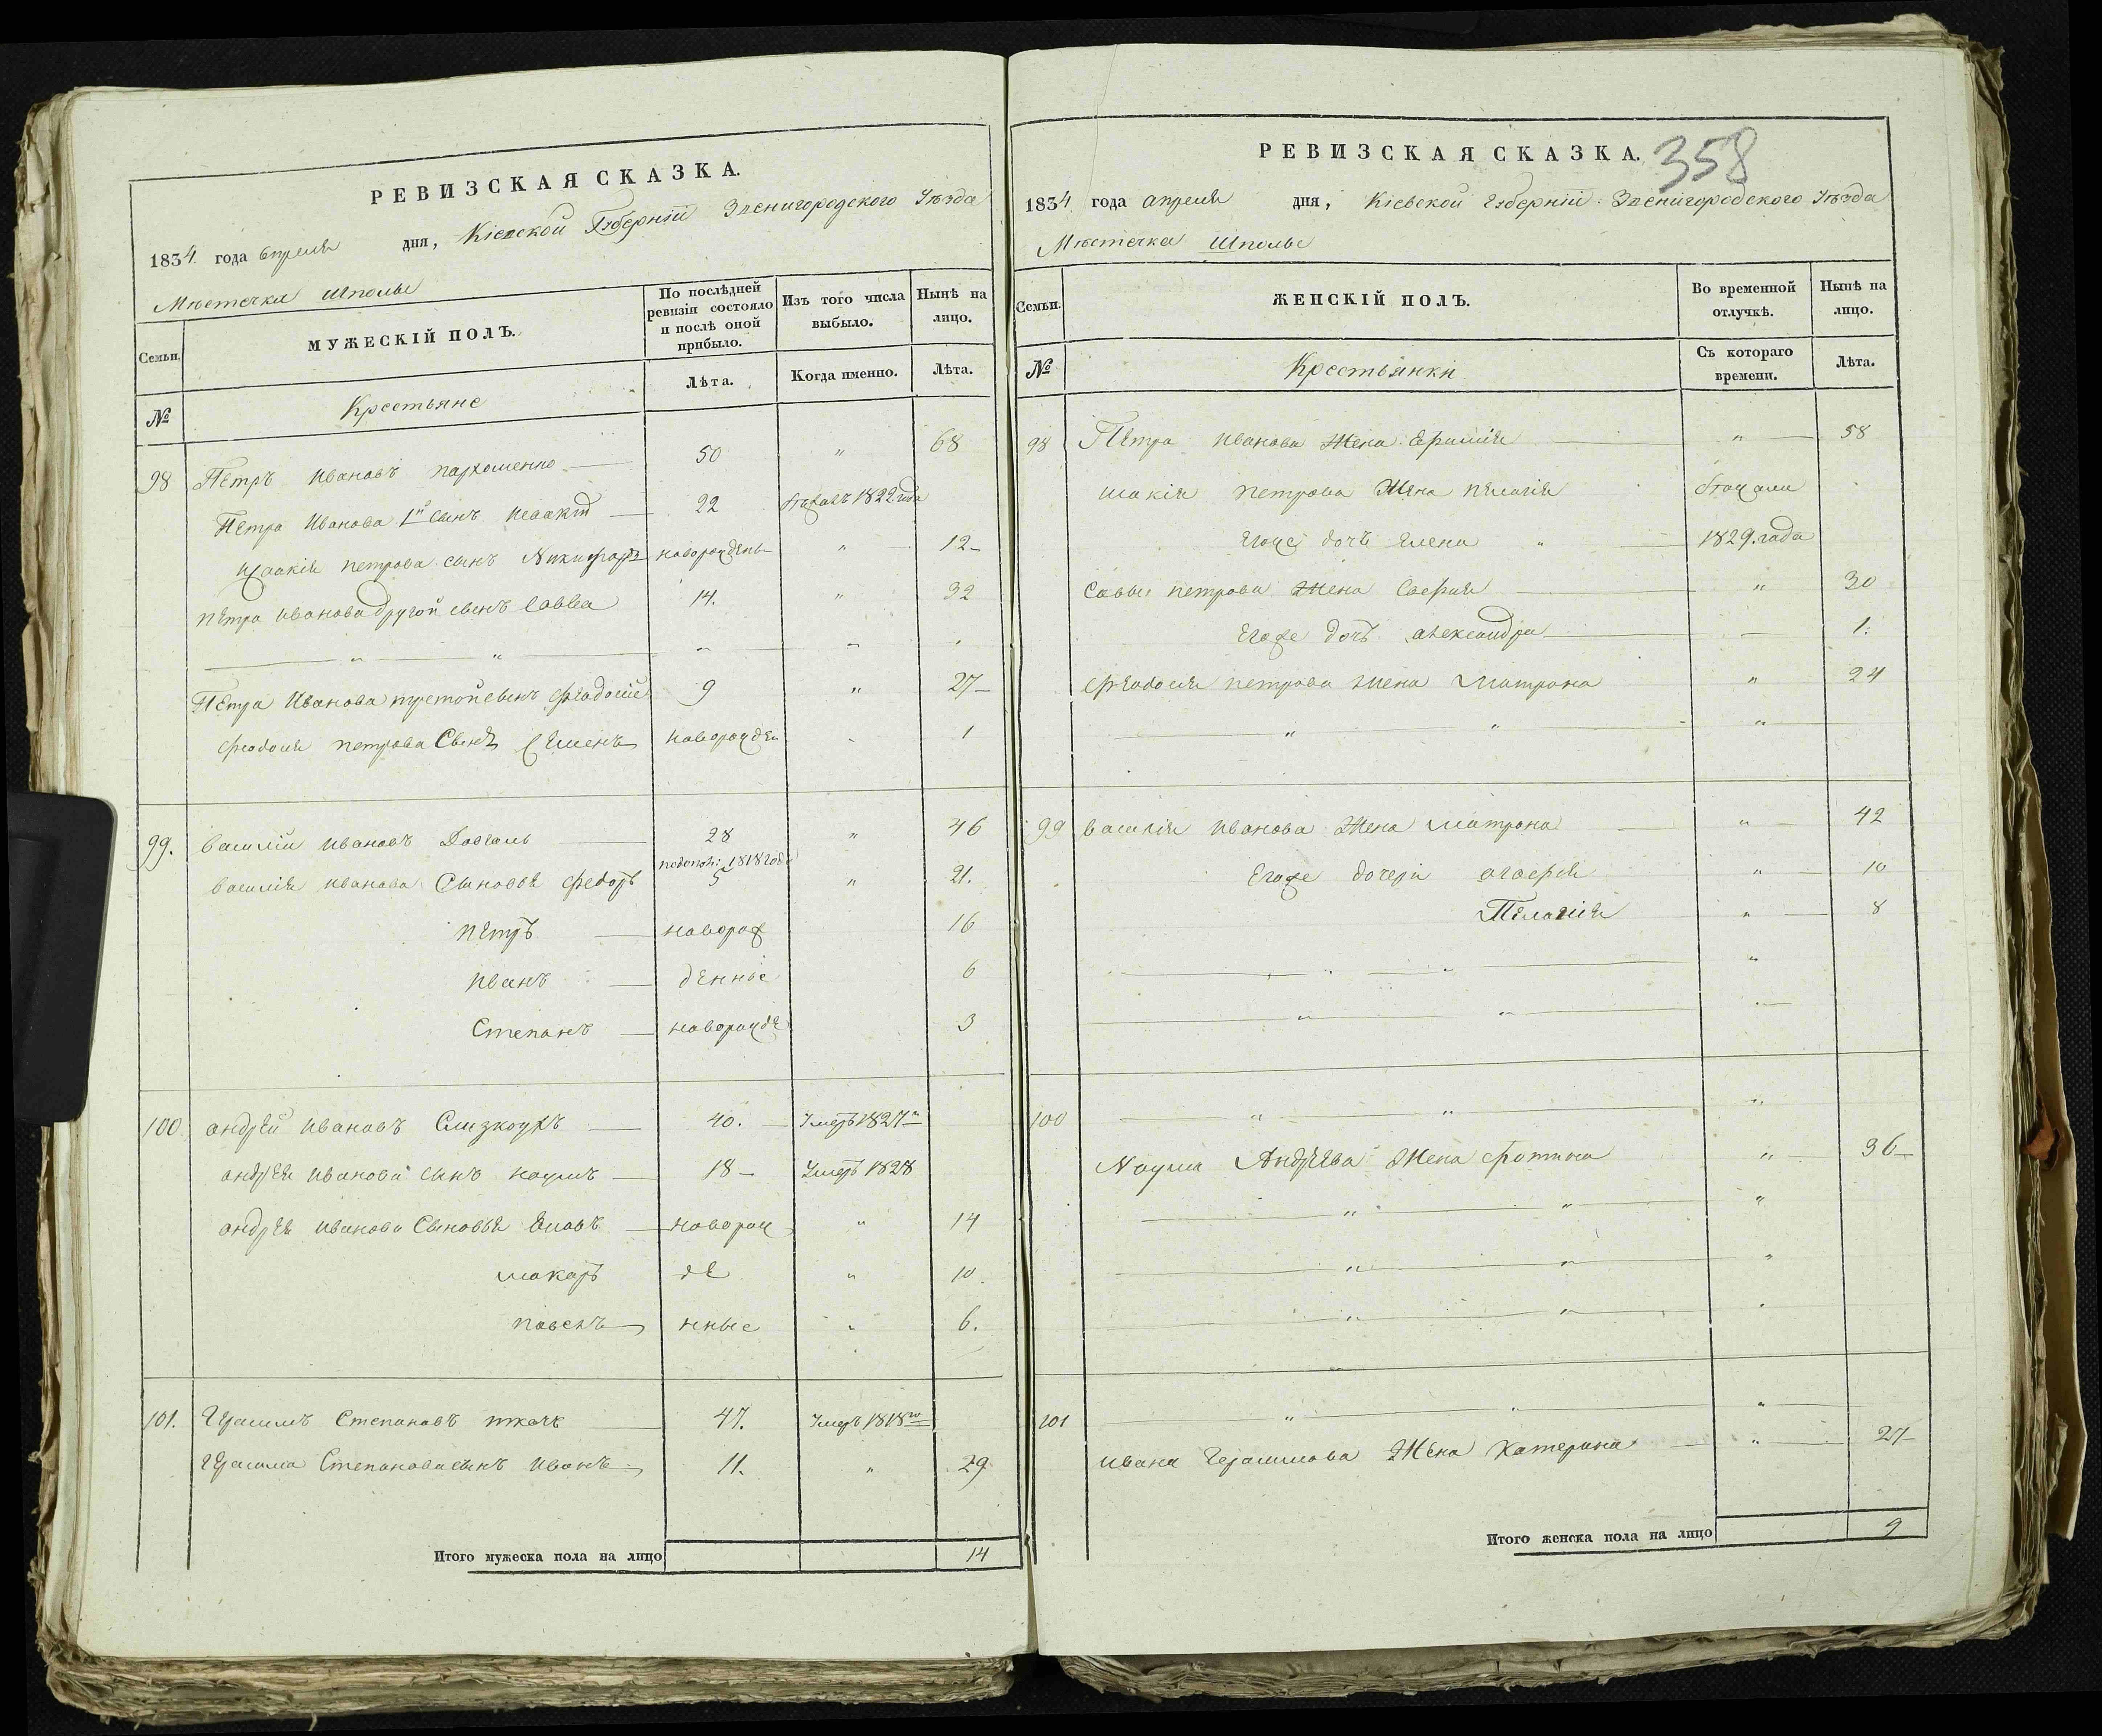 РЕВИЗСКАЯ СКАЗКА.
1834 года апреля дня, Кіевской Губерніи Звенигородского Уѣзда
Мѣстечка Шполы
Семьи.
МУЖЕСКІЙ ПОЛЪ.
По послѣдней ревизіи состояло и послѣ оной прибыло.
Изъ того числа выбыло.
Нынѣ на лицо.
№
Крестьяне
Лѣта.
Когда именно.
Лѣта.
98 Петръ Ивановъ пархоменко 50 " 68
Петра Иванова 1й сынъ 22 1822 года
петрова сынъ Никифоръ новорожден " 12
петра иванова другой сынъ Савва 14. " 32
Петра Иванова третой сынъ феодосий 9 " 27
феодосия петрова Сынъ Семенъ новорожден 1
99. василий ивановъ Довгаль 28 " 46
василия иванова Сыновья федоръ 1818 года 5 " 21.
петръ новорож 16
иванъ денные 6
Степанъ новорожде 3
100 андрей ивановъ Слизкоухъ 40. Умеръ 1827
андрея иванова сынъ наумъ 18 Умеръ 1828
андрея иванова Сыновья новорож " 14
макаръ де " 10.
павелъ нные 6.
101. Герасимъ Степановъ ткачъ 47. Умеръ 1818го
Герасима Степанова сынъ иванъ 11. " 29
Итого мужеска пола на лицо 14
358
РЕВИЗСКАЯ СКАЗКА.
1834 года апреля дня, Кіевской Губерніи Звенигородского Уѣзда
Мѣстечка Шполы
Семьи.
ЖЕНСКІЙ ПОЛЪ.
Во временной отлучкѣ.
Нынѣ на лицо.
№
Крестьянки
Съ котораго времени.
Лѣта.
98 Петра иванова Жена " 58
петрова Жена пелагия
Егоже дочь Елена " 1829. года
Савы петрова Жена София " 30
Егоже дочь александра 1.
феодосия петрова жена Матрона " 24
" " "
99 василия иванова Жена Матрона " 42
Егоже дочери агафия " 10
Пелагия " 8
100 " " "
Наума Андреева Жена фотина " 36
101 " " "
ивана Герасимова Жена Катерина " 27
Итого женска пола на лицо 9